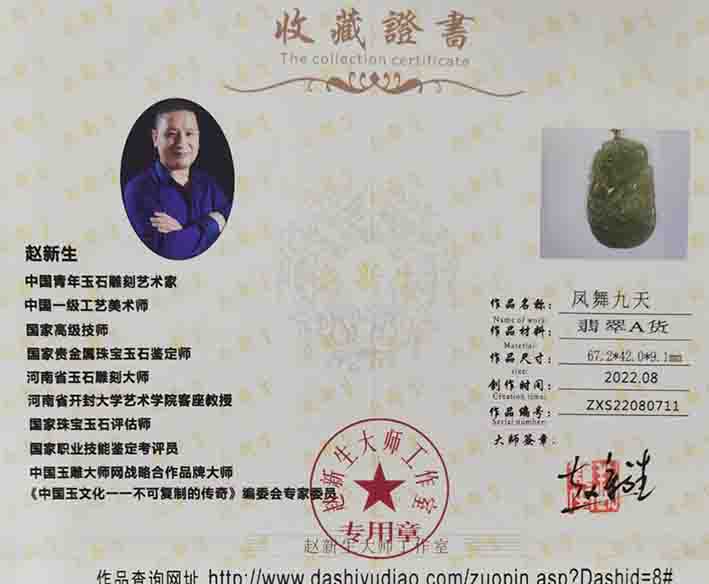 收藏證書
The collection certificate
赵新生
中国青年玉石雕刻艺术家
中国一级工艺美术师
国家高级技师
国家贵金属珠宝玉石鉴定师
河南省玉石雕刻大师
河南省开封大学艺术学院客座教授
国家珠宝玉石评估师
国家职业技能鉴定考评员
中国玉雕大师网战略合作品牌大师
《中国玉文化一一不可复制的传奇》编委会专家委员
作品名称: 凤舞九天
Name of work:
作品材料: 翡翠A货
Material:
作品尺寸: 67.2*42.0*9.1mm
size:
创作时间: 2022.08
Creation time:
作品编号: ZXS22080711
Serial number:
大师签章:
赵新生
赵新生大师工作室
专用章
赵新生大师工作室
作品查询网址 http://www.dashiyudiao.com/zuopin.asp?Dashid=8#